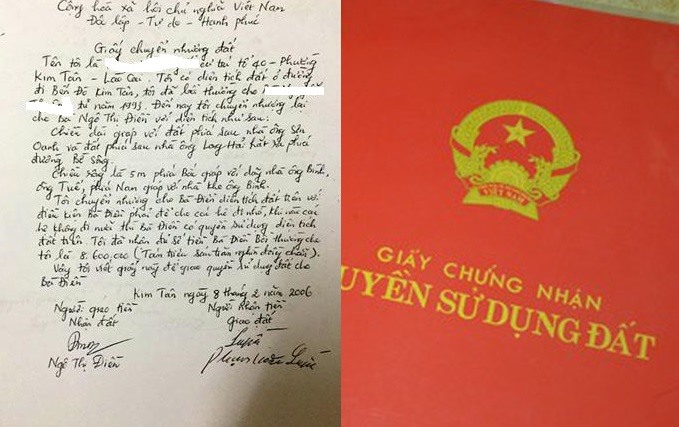 Cộng hoà xã hội chủ nghĩa Việt Nam
Độc lập - Tự do - Hạnh phúc
Giấy chuyển nhượng đất
Tên tôi là cư trú tổ 40 - Phường
Kim Tân - Lào Cai. Tôi có diện tích đất ở đường
đi Bến Đò Kim Tân, tôi đã bồi thường cho
từ năm 1993. Đến nay tôi chuyển nhượng lại
cho Bà Ngô Thị Điền với diện tích như sau:
Chiều dài giáp với đất phía sau nhà ông Sơn
Oanh và đất phía sau nhà ông Long Hải hắt ra phía
đường Bờ Sông.
Chiều rộng là 5m phía Bắc giáp với dãy nhà ông Bình,
ông Tuế, phía Nam giáp với nhà kho ông Bình.
Tôi chuyển nhượng cho Bà Điền diện tích đất trên với
điều kiện Bà Điền phải để cho các hộ đi nhờ, khi nào các
hộ không đi nữa thì Bà Điền có quyền sử dụng diện tích
đất trên. Tôi đã nhận đủ số tiền Bà Điền Bồi thường cho
tôi là 8.600.000 (Tám triệu sáu trăm nghìn đồng chẵn).
Vậy tôi viết giấy này để giao quyền sử dụng đất cho
Bà Điền
Kim Tân ngày 8 tháng 2 năm 2006
Người giao tiền Người nhận tiền
Nhận đất Giao đất
Ngô Thị Điền
GIẤY CHỨNG NHẬN
UYỀN SỬ DỤNG ĐẤT